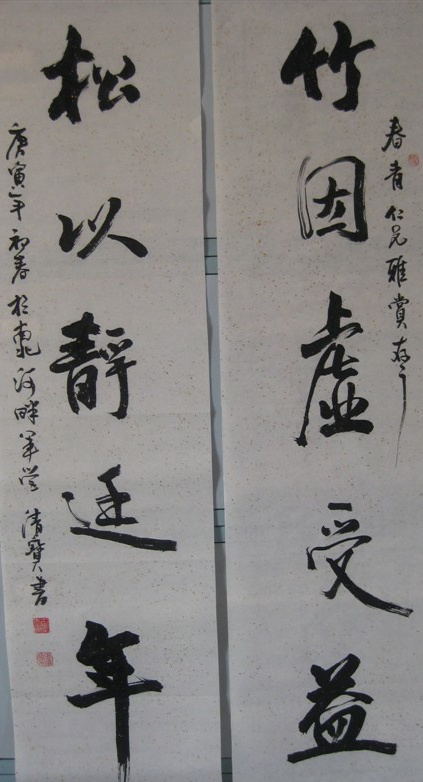 竹因虚受益
春青仁兄雅赏存之
松以静延年
庚寅年初春於 河畔军营 清宝书